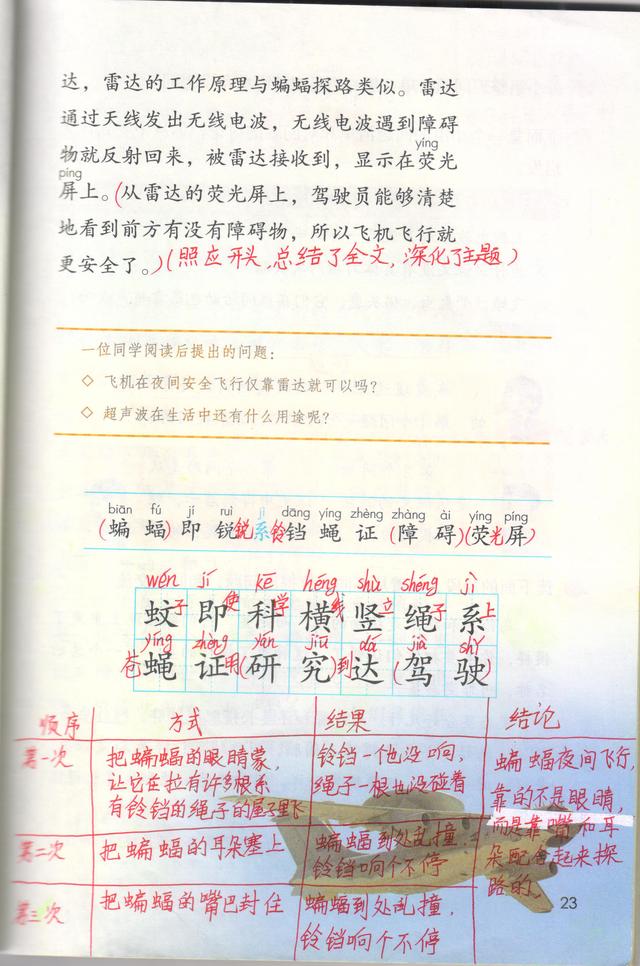 达，雷达的工作原理与蝙蝠探路类似。雷达
通过天线发出无线电波，无线电波遇到障碍
yíng
物就反射回来，被雷达接收到，显示在荧光
píng
屏上。(从雷达的荧光屏上，驾驶员能够清楚
地看到前方有没有障碍物，所以飞机飞行就
更安全了。)(照应开头，总结了全文，深化了主题)
一位同学阅读后提出的问题：
◇ 飞机在夜间安全飞行仅靠雷达就可以吗？
◇ 超声波在生活中还有什么用途呢？
biān fú jí ruì jì dāng yíng zhèng zhàng ài yíng píng
(蝙蝠)即锐锐系铃铛蝇证(障碍)(荧光屏)
wén jí kē héng shù shéng jì
蚊子即使科学横线竖立绳子系上
yíng zhèng yán jiū dá jià shǐ
苍蝇证用(研究)到达(驾驶
顺序 方式 结果 结论
第一次 把蝙蝠的眼睛蒙， 铃铛一个也没响， 蝙蝠夜间飞行，
让它在拉有许多根系 绳子一根也没碰着 靠的不是眼睛，
有铃铛的绳子的屋子里飞 而是靠嘴和耳
第二次 把蝙蝠的耳朵塞上 蝙蝠到处乱撞， 朵配合起来探
铃铛响个不停 路的。
第三次 把蝙蝠的嘴巴封住 蝙蝠到处乱撞，
铃铛响个不停
23